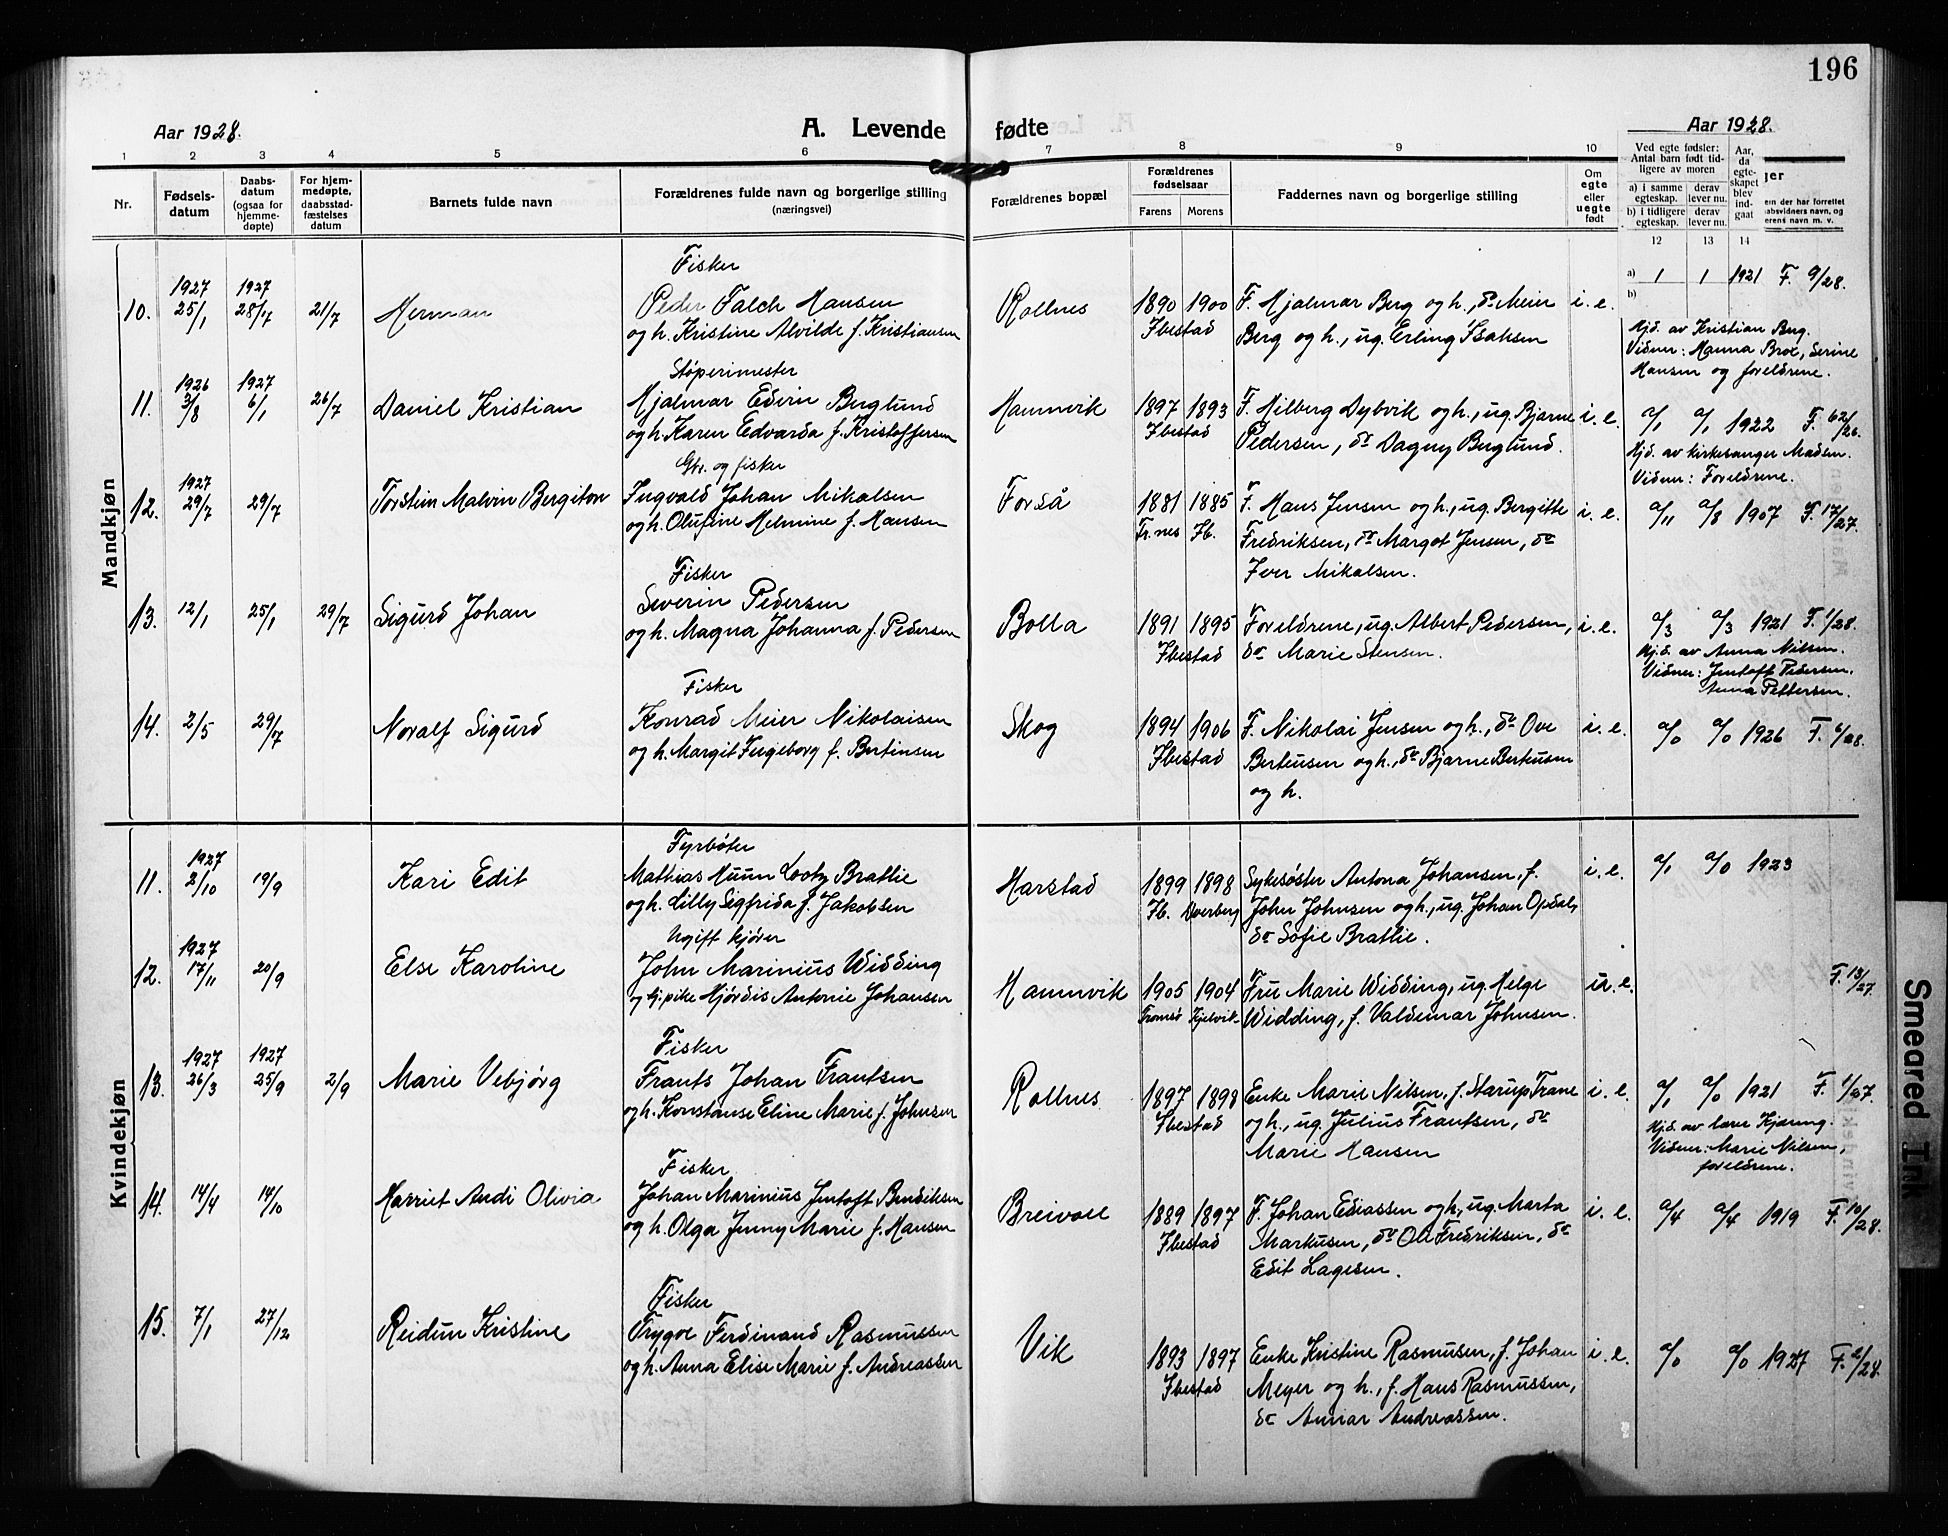 196
Aar 1928.
A. Levende
fødte
Aar 1928.
1 2 3 4 5 6 7 8 9 10
Nr.
Fødsels-
datum
Daabs-
datum
(ogsaa for
hjemme-
døpte)
For hjem-
medøpte,
daabsstad-
fæstelses
datum
Barnets fulde navn
Forældrenes fulde navn og borgerlige stilling
(næringsvei)
Forældrenes bopæl
Forældrenes
fødselsaar
Farens
Morens
Faddernes navn og borgerlige stilling
Om
egte
eller
uegte
født
Ved egte fødsler:
Antal barn født tid-
ligere av moren
a) i samme
egteskap.
derav
lever nu.
b) i tidligere
egteskap.
derav
lever nu.
Aar,
da
egte-
skapet
blev
ind-
gaat
12 13 14
Mandkjøn
Fisker
10. 1927 25/1 1927 28/17 21/7 Herman Peder Falch Hansen
og h. Kristine Alvilde f. Kristiansen
Rollnes 1890 1900 Ibestad
F. Hjalmar Berg og h., do Meier
Berg og h., ug. Erling Isaksen
i. e. a) 1 1 1921 F. 9/28.
b)
Hj.d. av Kristian Berg.
Vidner: Hanna Broe, Serine
Hansen og foreldrene.
Støperimester
11. 1926 3/8 1927 6/1 26/7 Daniel Kristian Hjalmar Edvin Berglund
og h. Karen Edvarda f. Kristoffersen
Hamnvik 1897 1893 Ibestad
F. Hilberg Dybvik og h., ug. Bjarne
Pedersen, do Dagny Berglund.
i. e. a/1 a/1 1922 F. 62/26.
Hj.d. av kirkesanger Madsen.
Vidner: Foreldrene.
Gbr. og fisker
12. 1927 29/7 29/7 Torstein Malvin Bergiton Ingvald Johan Mikalsen
og h. Olufine Helmine f. Hansen
Forså 1881 1885 Tr.nes Ib.
F. Hans Jensen og h., ug. Bergitte
Fredriksen, do Margot Jensen, do
Iver Mikalsen.
i. e. a/11 a/8 1907 F. 17/27.
Fisker
13. 12/1 25/1 29/7 Sigurd Johan Severin Pedersen
og h. Magna Johanna f. Pedersen
Bolla 1891 1895 Ibestad
Foreldrene, ug. Albert Pedersen,
do Marie Stensen.
i. e. a/3 a/3 1921 F. 1/28.
Hj.d. av Anna Nilsen.
Vidner: Jentoft Pedersen.
Anna Pettersen.
Fisker
14. 2/5 29/7 Noralf Sigurd Konrad Meier Nikolaisen
og h. Margit Ingeborg f. Bertinsen
Skog 1894 1906 Ibestad
F. Nikolai Jensen og h., do Ove
Berteusen og h., do Bjarne Berteusen
og h.
i. e. a/0 a/0 1926
Kvindekjøn
Fyrbøter
11. 1927 2/10 19/9 Kari Edit Mathias Huun Lootz Brattlie
og h. Lilly Sigfrida f. Jakobsen
Harstad 1899 1898 Ib. Dverberg
Sykesøster Antona Johansen, f.
John Johnsen og h., ug. Johan Opdal,
do Sofie Brattlie.
i. e. a/1 a/0 1923
Ugift kjører
12. 1927 17/11 20/9 Else Karoline John Marinius Widding
og tj.pike Hjørdis Antonie Johansen
Hamnvik 1905 1904 Tromsø Kjelvik
Fru Marie Widding, ug. Helge
Widding, f. Valdemar Johnsen.
u. e. F. 13/27.
Fisker
13. 1927 26/3 1927 25/9 2/9 Marie Vebjørg Frants Johan Frantsen
og h. Konstanse Eline Marie f. Johnsen
Rollnes 1897 1898 Ibestad
Enke Marie Nilsen, f. Starup Trane
og h., ug. Julius Frantsen, do
Marie Hansen
i. e. a/1 a/0 1921 F. 1/27.
Hj.d. av lærer Kjæreng.
Vidner: Marie Nilsen,
foreldrene.
Fisker
14. 14/4 14/10 Harriet Andi Olivia Johan Marinius Jentoft Bendiksen
og h. Olga Jenny Marie f. Hansen
Breivoll 1889 1897 Ibestad
F. Johan Ediassen og h., ug. Marta
Markusen, do Ole Fredriksen, do
Edit Lagesen.
i. e. a/4 a/4 1919 F. 10/28.
Fisker
15. 7/1 27/12 Reidun Kristine Trygve Ferdinand Rasmussen
og h. Anna Elise Marie f. Andreassen
Vik 1893 1897 Ibestad
Enke Kristine Rasmusen, f. Johan
Meyer og h., f. Hans Rasmussen,
do Annar Andreassen.
i. e. a/0 a/0 1927 F. 2/28.
Smeared Ink